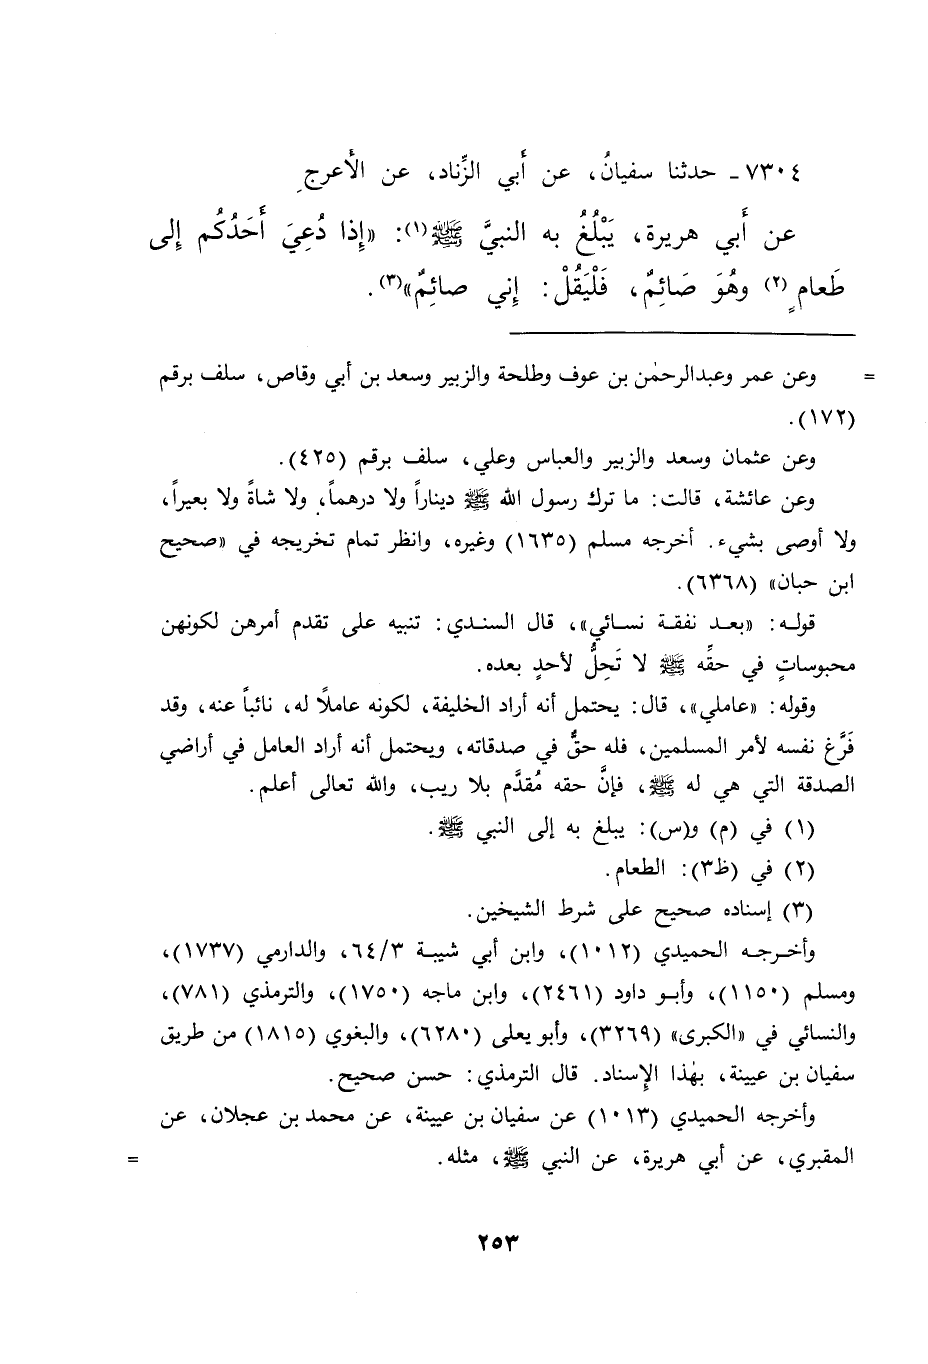 ٧٣٠٤ - حدثنا سفيانُ، عن أَبي الزِّناد، عن الأَعرجِ
عن أَبي هريرة، يَبْلُغُ به النبيَّ ﷺ(١): «إِذا دُعِيَ أَحَدُكُم إِلى
طَعامٍ(٢) وهُوَ صَائِمٌ، فَلْيَقُلْ: إِني صائِمٌ»(٣).
= وعن عمر وعبدالرحمٰن بن عوف وطلحة والزبير وسعد بن أبي وقاص، سلف برقم
(١٧٢).
وعن عثمان وسعد والزبير والعباس وعلي، سلف برقم (٤٢٥).
وعن عائشة، قالت: ما ترك رسول الله ﷺ ديناراً ولا درهماً، ولا شاةً ولا بعيراً،
ولا أوصى بشيء. أخرجه مسلم (١٦٣٥) وغيره، وانظر تمام تخريجه في «صحيح
ابن حبان» (٦٣٦٨).
قوله: «بعد نفقة نسائي»، قال السندي: تنبيه على تقدم أمرهن لكونهن
محبوساتٍ في حقِّه ﷺ لا تَحِلُّ لأحدٍ بعده.
وقوله: «عاملي»، قال: يحتمل أنه أراد الخليفة، لكونه عاملاً له، نائباً عنه، وقد
فَرَّغ نفسه لأمر المسلمين، فله حقٌّ في صدقاته، ويحتمل أنه أراد العامل في أراضي
الصدقة التي هي له ﷺ، فإنَّ حقه مُقدَّم بلا ريب، والله تعالى أعلم.
(١) في (م) و(س): يبلغ به إلى النبي ﷺ.
(٢) في (ظ٣): الطعام.
(٣) إسناده صحيح على شرط الشيخين.
وأخرجه الحميدي (١٠١٢)، وابن أبي شيبة ٦٤/٣، والدارمي (١٧٣٧)،
ومسلم (١١٥٠)، وأبو داود (٢٤٦١)، وابن ماجه (١٧٥٠)، والترمذي (٧٨١)،
والنسائي في «الكبرى» (٣٢٦٩)، وأبو يعلى (٦٢٨٠)، والبغوي (١٨١٥) من طريق
سفيان بن عيينة، بهٰذا الإسناد. قال الترمذي: حسن صحيح.
وأخرجه الحميدي (١٠١٣) عن سفيان بن عيينة، عن محمد بن عجلان، عن
المقبري، عن أبي هريرة، عن النبي ﷺ، مثله. =
٢٥٣